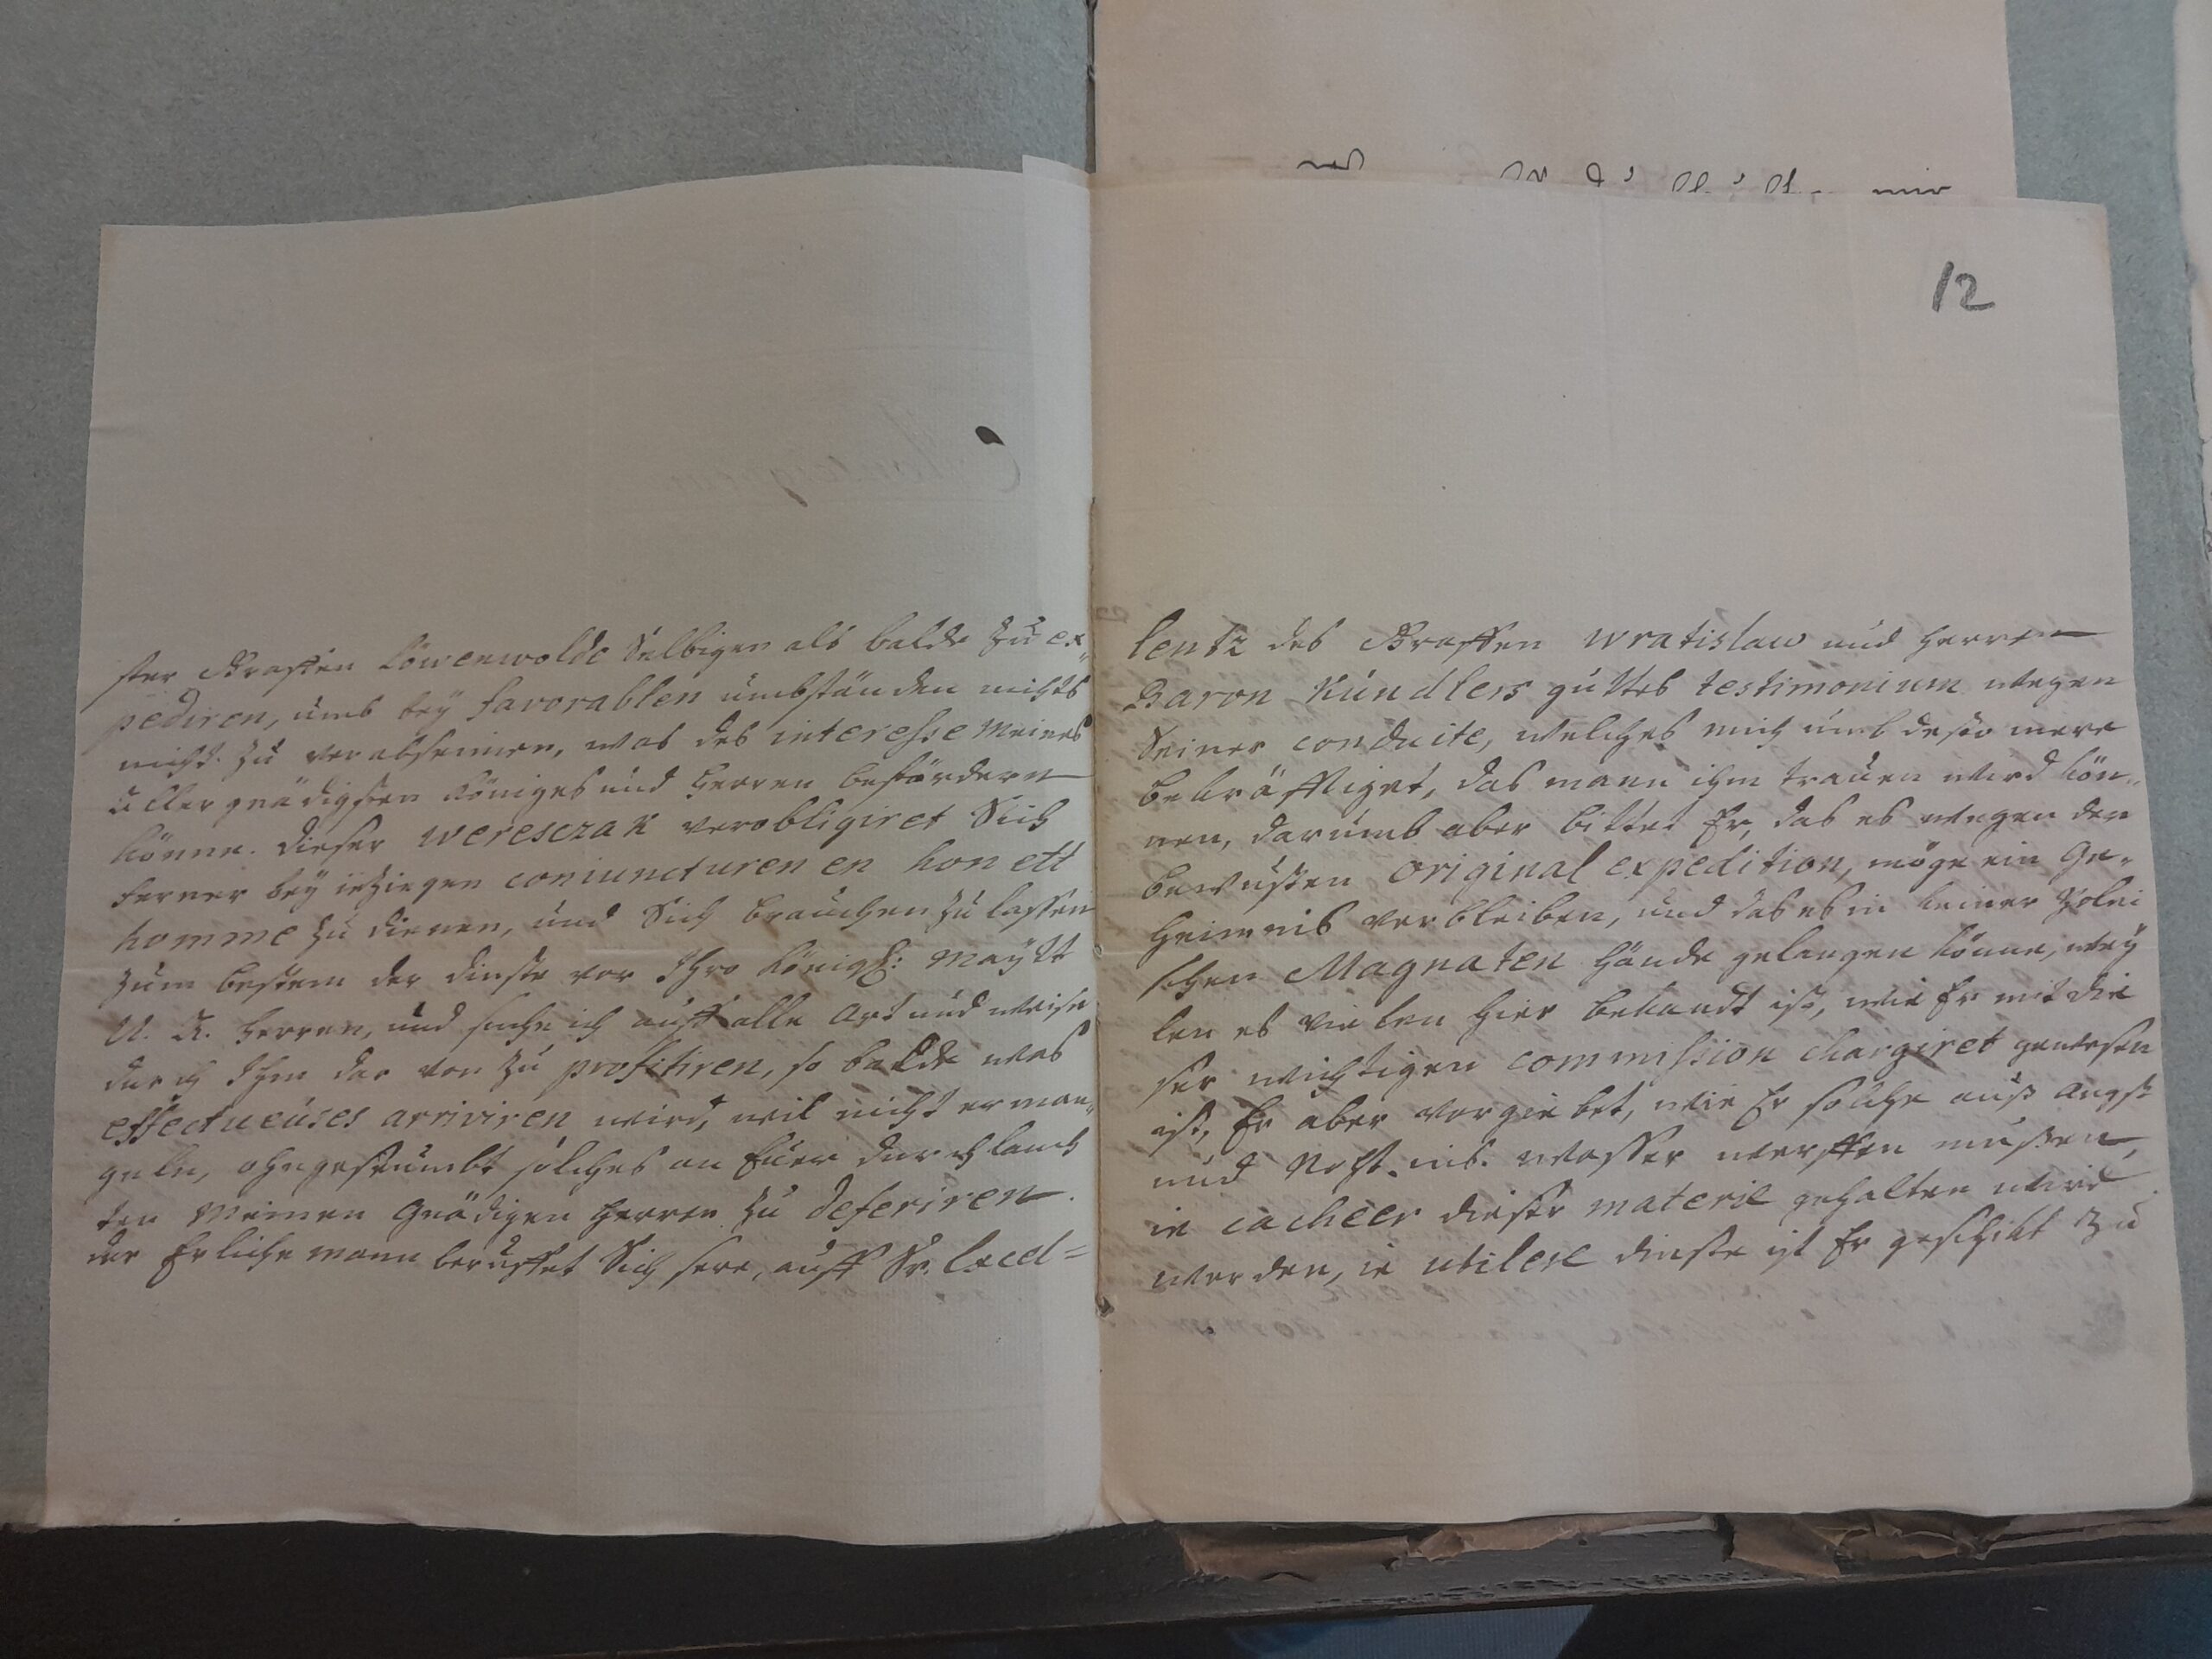 ster Graffen Löwenwolde Selbigen als balde zu ex-
pediren, umb bey favorablen umbständen nichts
nicht zu verabseumen, was des interesse meines
aller gnädigsten Königes und Herren befördern
könne. dieser Weresczak verobligiret Sich
ferner bey itzigen coniuncturen en honett
homme zu dienen, und Sich brauchen zu lassen
zum bestem der dinste vor Ihro Königl: Maytt
U. A. Herren, und suche ich auff alle Art und weise
durch Ihm dar von zu profitiren, so balde was
effectueuses arriviren wird, wil nicht erman-
geln, ohngeseumbt solches an Euer durchlauch
ten Meinen Gnädigen Herren zu deferiren.
der Erliche mann beruffet Sich sere, auff Sr. Excel=
12
lentz des Graffen Wratislaw und Herren
Baron Kündlers guttes testimonium wegen
Seiner conduite, welches mich umb desto mere
bekräfftiget, das mann ihm trauen wird kön-
nen, darumb aber bittet Er, das es wegen der
bewusten original expedition, möge ein Ge-
heimnis verbleiben, und das es in keiner Polni
schen Magnaten Hände gelangen könne, wey
len es vielen hier bekandt ist, wie Er mit die
ser wichtigen commission chargiret gewesen
ist, Er aber vorgiebet, wie Er solche aus angst
und Noht ins wasser werffen müssen,
ie cacheer diese materie gehalten wird
werden, ie utilere dinste ist Er geschikt zu